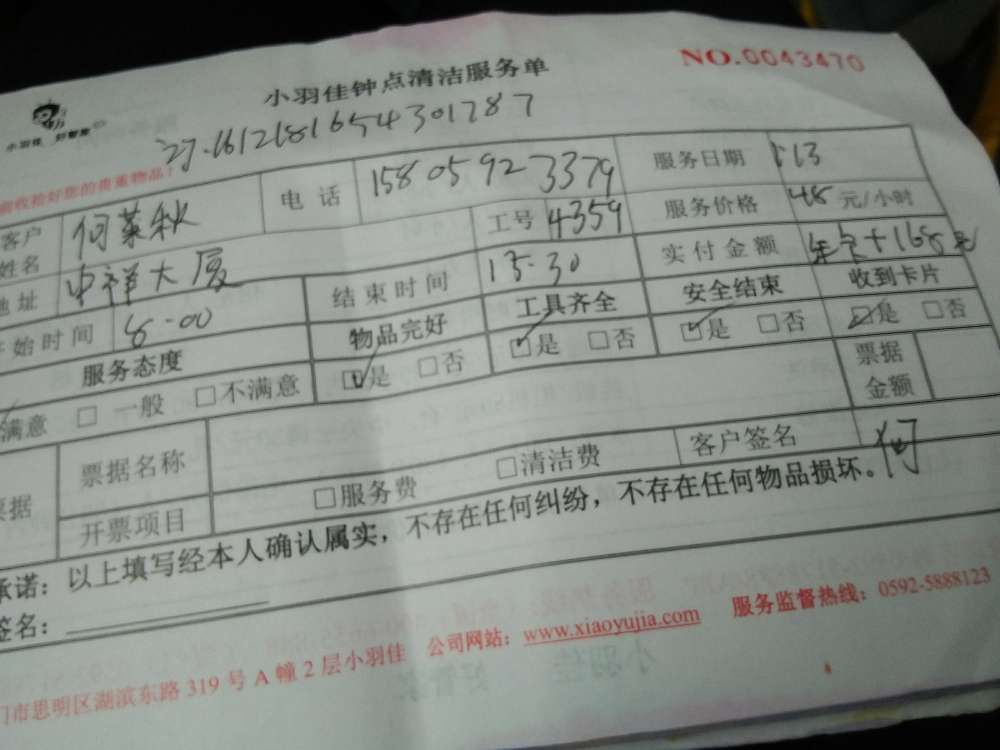 小羽佳钟点清洁服务单
NO.0043470
小羽佳 好管家
订.1612181654301787
前收拾好您的贵重物品!
客户姓名 何菜秋 电话 15805923379 服务日期 1.13
地址 中祥大厦 工号 4359 服务价格 48 元/小时
开始时间 8-00 结束时间 13-30 实付金额 年卡+168元
服务态度 物品完好 工具齐全 安全结束 收到卡片
满意 □ 一般 □不满意 ☑是 □否 ☑是 □否 ☑是 □否 ☑是 □否
票据 票据名称 票据金额
开票项目 □服务费 □清洁费 客户签名 何
承诺：以上填写经本人确认属实，不存在任何纠纷，不存在任何物品损坏。
签名：
门市思明区湖滨东路 319 号 A 幢 2 层小羽佳 公司网站：www.xiaoyujia.com 服务监督热线：0592-5888123